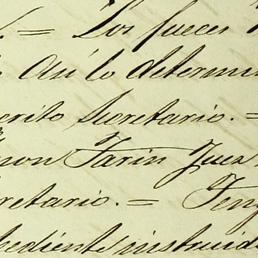 . = Los jueces
Así lo determi
erito Secretario. =
mon Tarin Juez
retario. = Ten
pediente instruid